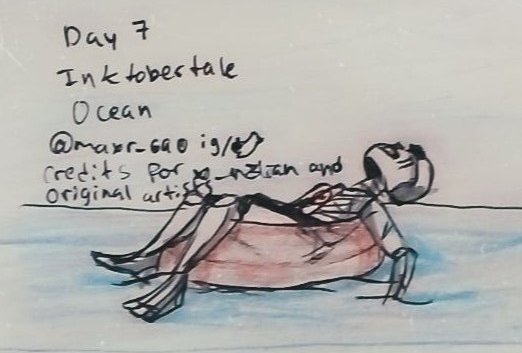 Day 7
Inktobertale
Ocean
@maxr_sao ig/
credits por and
original artists